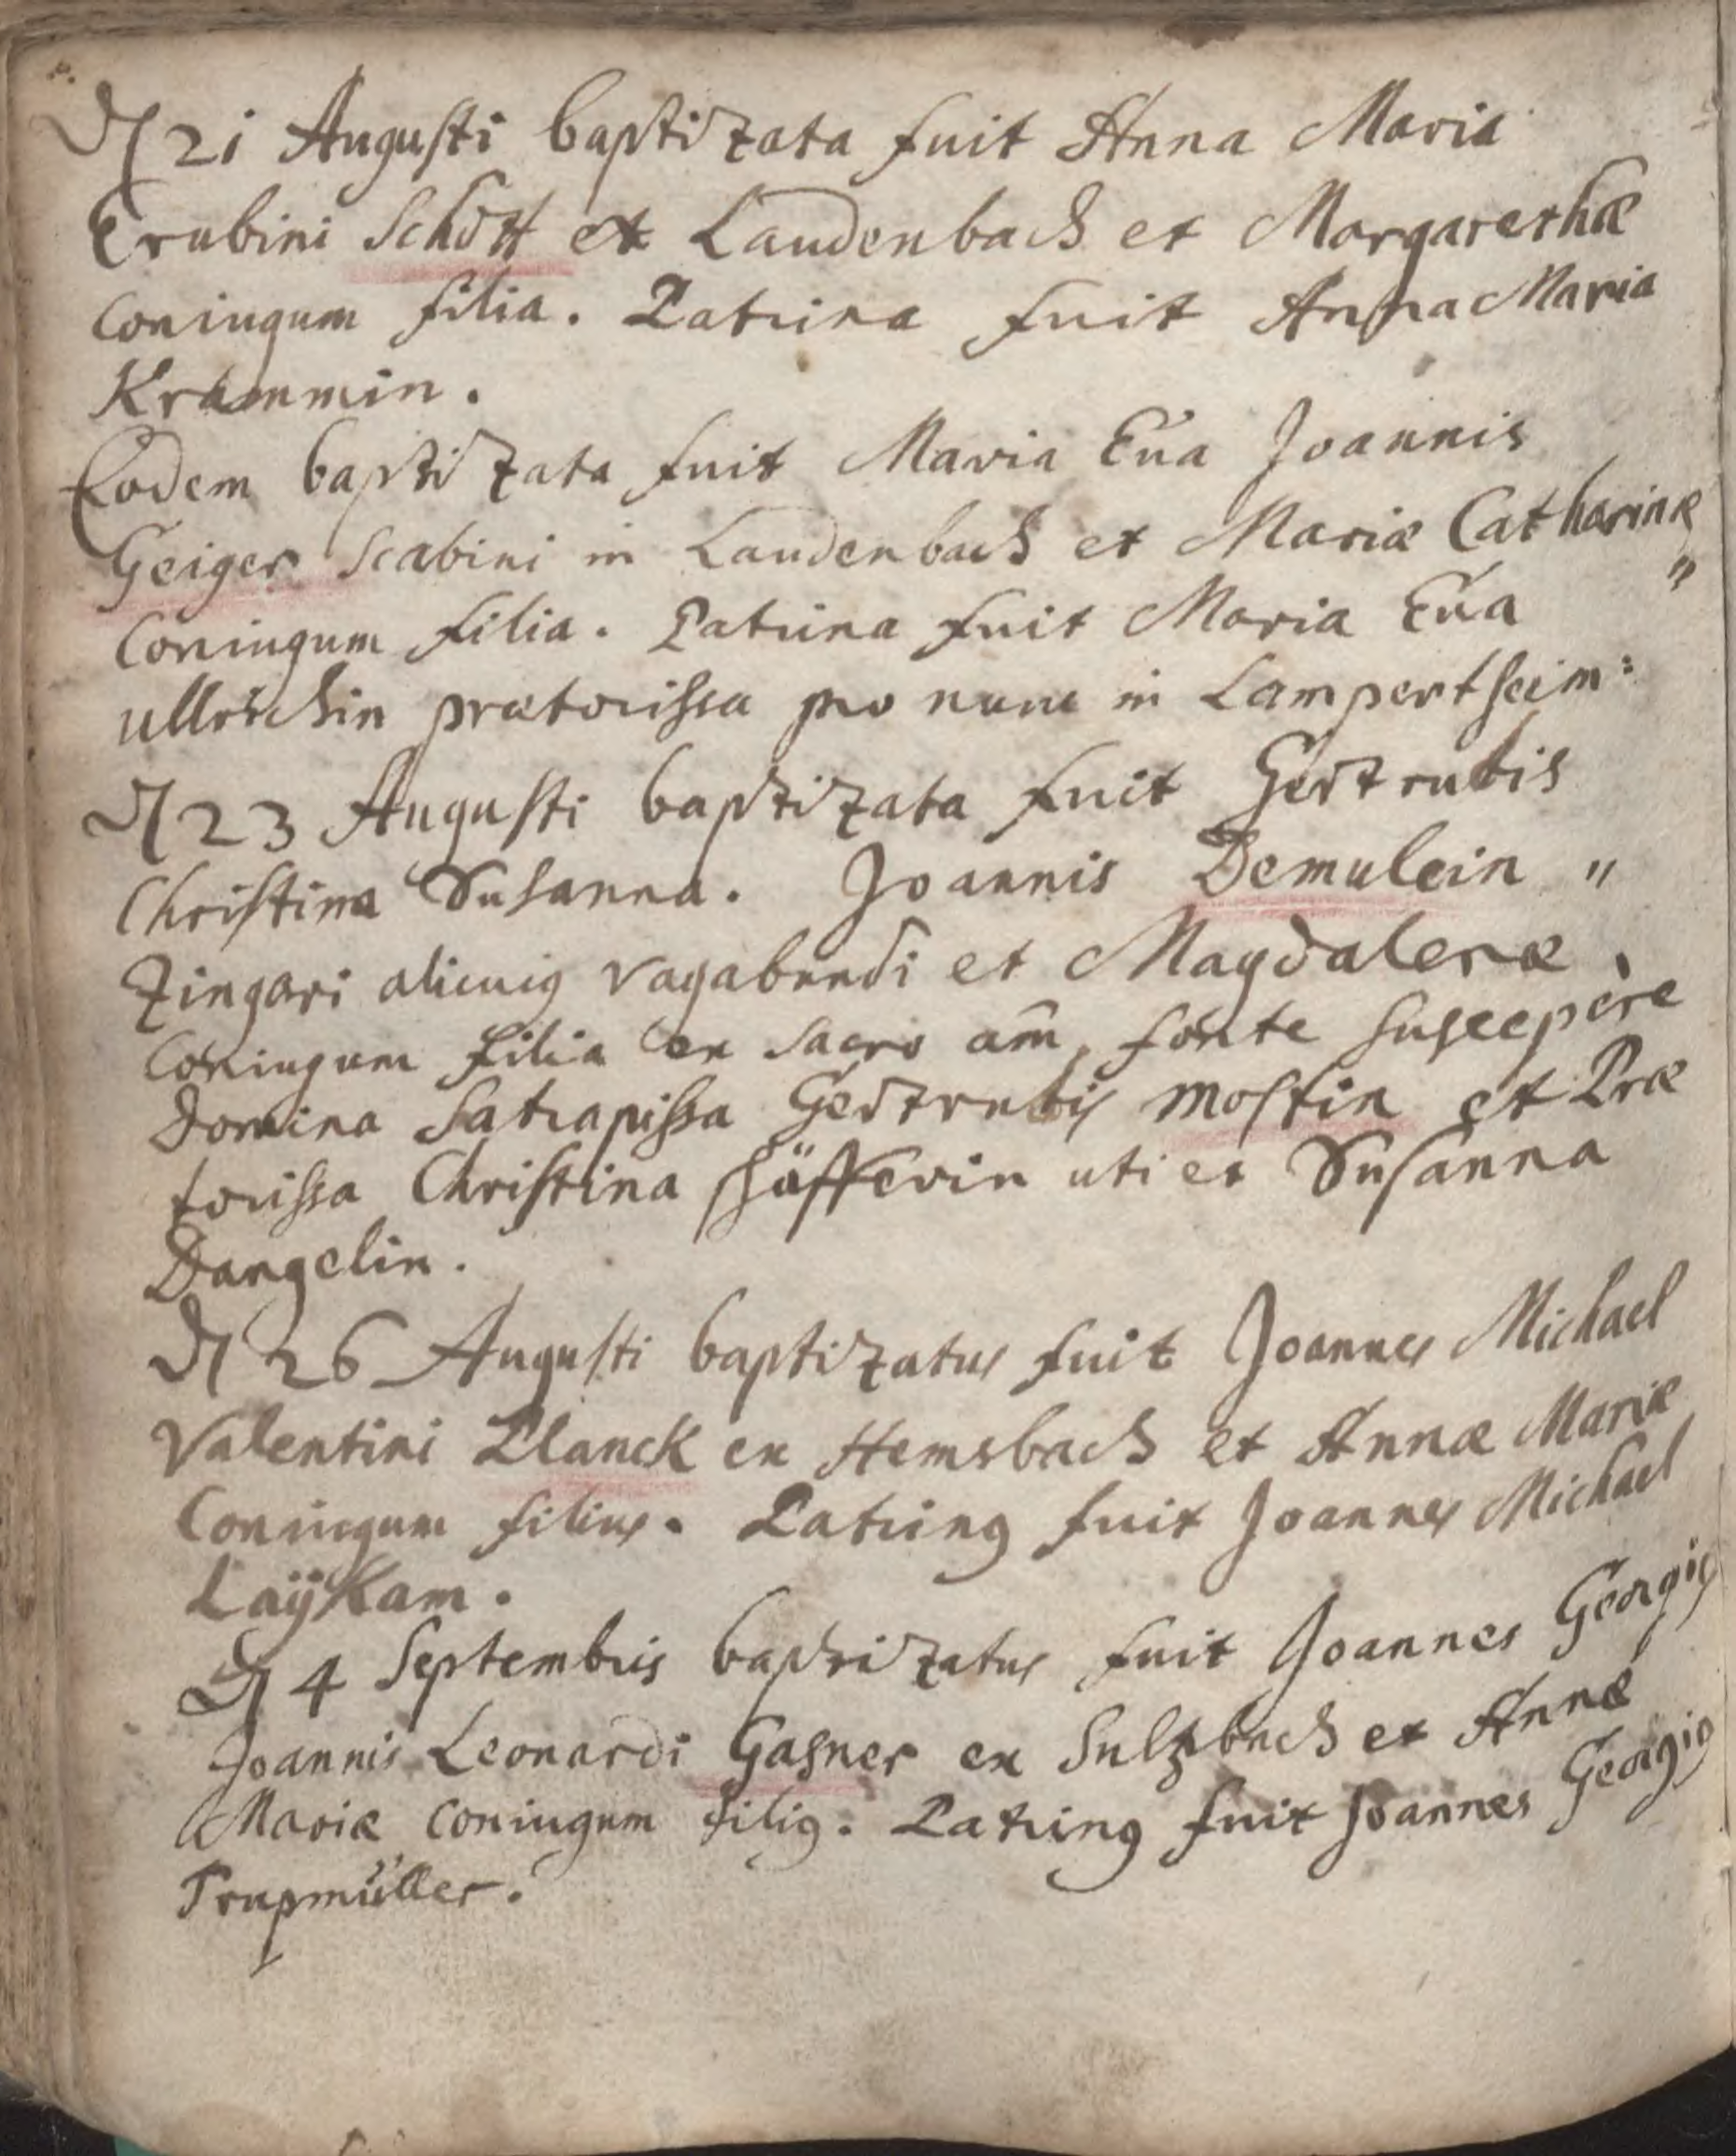 D 21 Augusti baptizata fuit Anna Maria
Crubini Schött ex Laudenbach et Margarethæ
Coniugum filia. Patrina fuit Anna Maria
Krammin.
Eodem baptizata fuit Maria Eúa Joannis
Geiger Scabini in Laudenbach et Mariæ Catharinæ
Coniugum filia. Patrina fuit Maria Eúa "
ullrichin prætorissa pro nunc in Lampertheim:
D 23 Augusti baptizata fuit Gertrudis
Christina Susanna. Joannis Demulein "
Zingari alicuiq vagabundi et Magdalenæ
Coniugum filia ex sacro fonte suscepere
Domina Satrapissa Gertrudis Mostin et Præ
torissa Christina schäfferin uti et Susanna
Dangelin.
D 26 Augusti baptizatus fuit Joannes Michael
Valentini Planck ex Hemsbach et Annæ Mariæ
Coniugum filius. Patrinq fuit Joannes Michael
Laÿkam.
D 4 Septembris baptizatus fuit Joannes Georgiq
Joannis Leonardi Gasner ex Sulzbach et Annæ
Mariæ Coniugum filiq. Patrinq fuit Joannes Georgiq
Trupmüller.